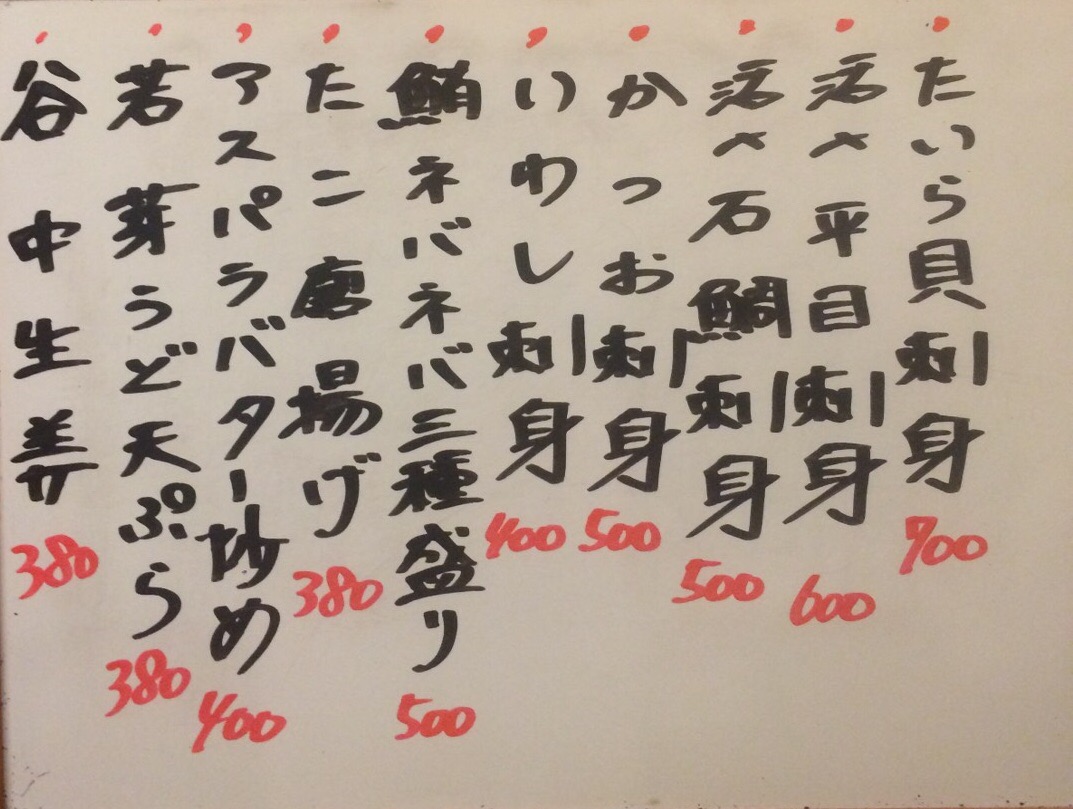 たいら貝刺身 700
活〆平目刺身 600
活〆石鯛刺身 500
かつお刺身 500
いわし刺身 400
鮪ネバネバ三種盛り 500
たこ唐揚げ 380
アスパラバター炒め 400
若芽うど天ぷら 380
谷中生姜 380